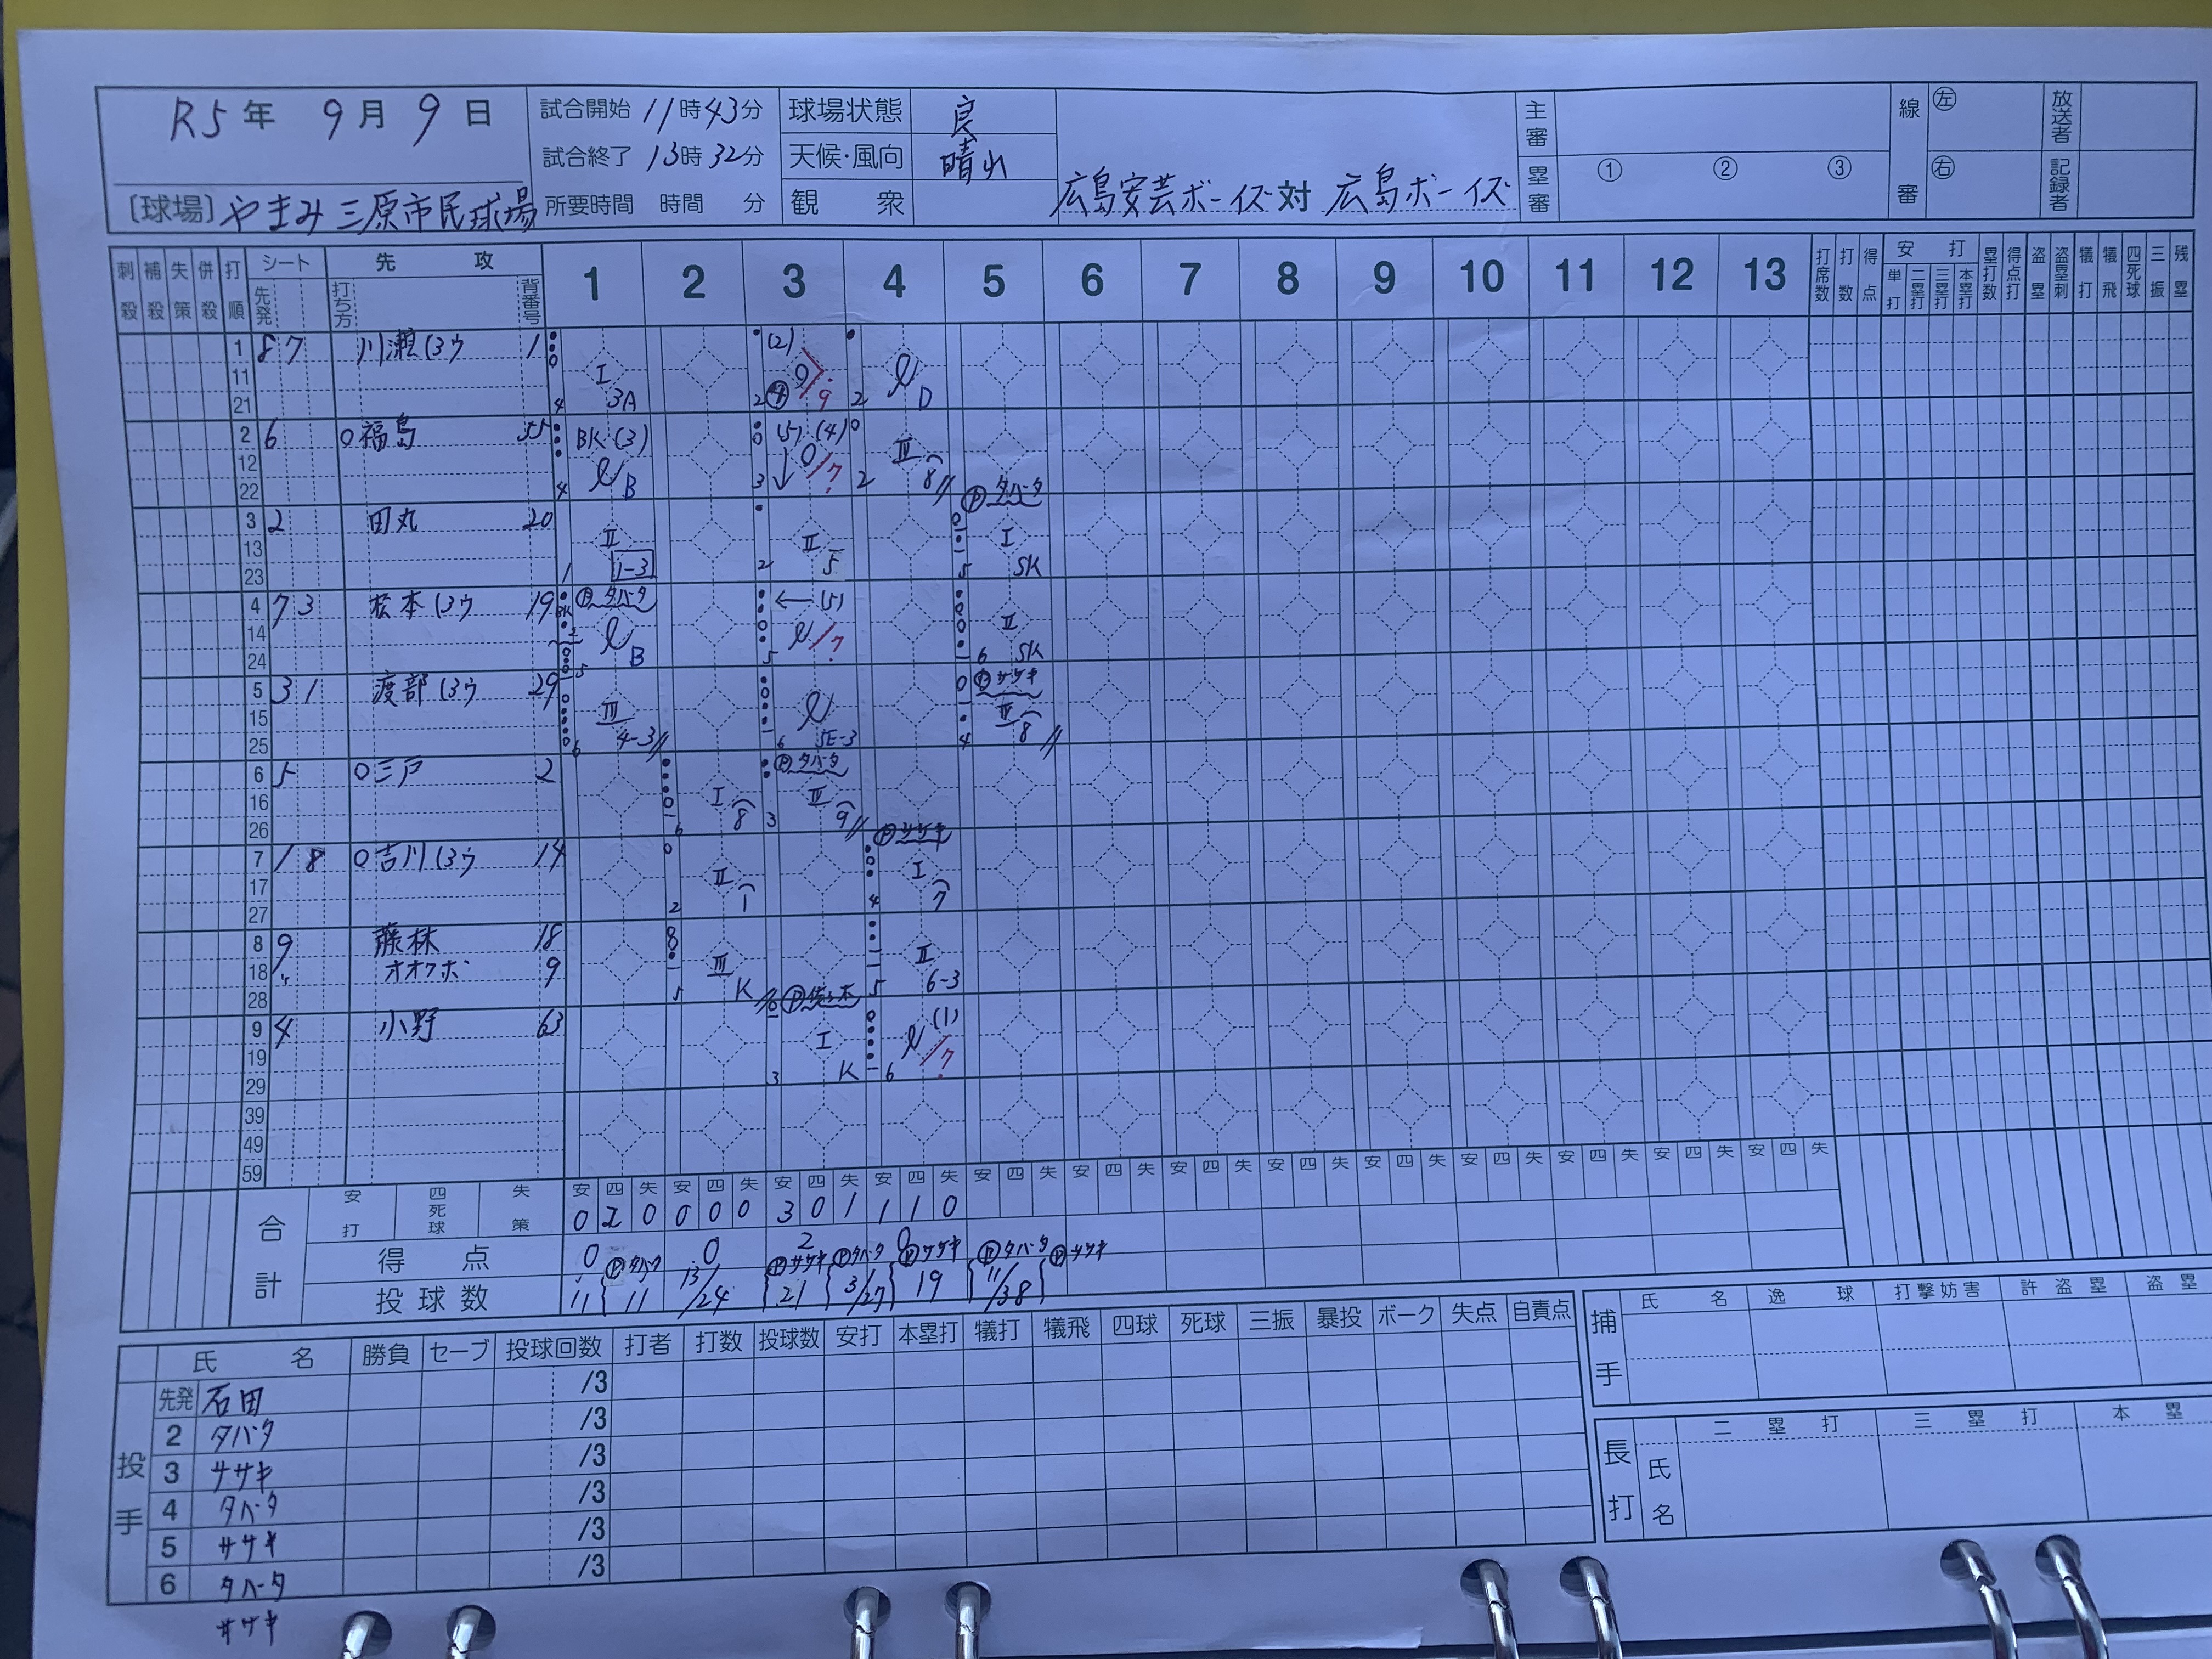 R5年 9月 9日
〔球場〕やまみ三原市民球場
試合開始 11時43分
試合終了 13時32分
所要時間 時間 分
球場状態 良
天候・風向 晴れ
観衆
広島安芸ボーイズ 対 広島ボーイズ
主審
塁審 ① ② ③
線審 左 右
放送者
記録者
刺殺 補殺 失策 併殺 打順 シート 先発 先攻 打ち方 背番号 1 2 3 4 5 6 7 8 9 10 11 12 13 打席数 打数 得点 安打 単打 二塁打 三塁打 本塁打 塁打数 得点打 盗塁 盗塁刺 犠打 犠飛 四死球 三振 残塁
1 11 21 8 7 川瀬(3ウ 1
I 3A
(2) 9
D
2 12 22 6 O福島 55
BK (3) B
(5) (4) 7
IIII 8
3 13 23 2 田丸 20
II 1-3
II 5
Ⓟタバータ I SK
4 14 24 7 3 松本(3ウ 19
Ⓟタバータ B
(5) 7
II SK
5 15 25 3 1 渡部(3ウ 29
III 4-3
5E-3
Ⓟササキ 8
6 16 26 5 O三戸 2
I 8
Ⓟタバータ 9
7 17 27 1 8 O吉川(3ウ 14
II 1
Ⓟササキ I 7
8 18 28 9 藤林 18
オオクボ 9
III K
II 6-3
9 19 29 4 小野 63
Ⓟ佐々木 I K
(1) 7
39 49 59
安 四 失 安 四 失 安 四 失 安 四 失 安 四 失 安 四 失 安 四 失 安 四 失 安 四 失 安 四 失 安 四 失 安 四 失 安 四 失
合計 安打 四死球 失策 0 2 0 0 0 0 3 0 1 1 1 0
得点 0 0 2 0
Ⓟタバータ Ⓟササキ Ⓟタバータ Ⓟササキ Ⓟタバータ Ⓟササキ
投球数 11 11 13/24 21 3/27 19 11/38
投手 氏名 勝負 セーブ 投球回数 打者 打数 投球数 安打 本塁打 犠打 犠飛 四球 死球 三振 暴投 ボーク 失点 自責点
先発 石田 /3
2 タバタ /3
3 ササキ /3
4 タバータ /3
5 ササキ /3
6 タバータ /3
ササキ
捕手 氏名 逸球 打撃妨害 許盗塁 盗塁
長打 氏名 二塁打 三塁打 本塁